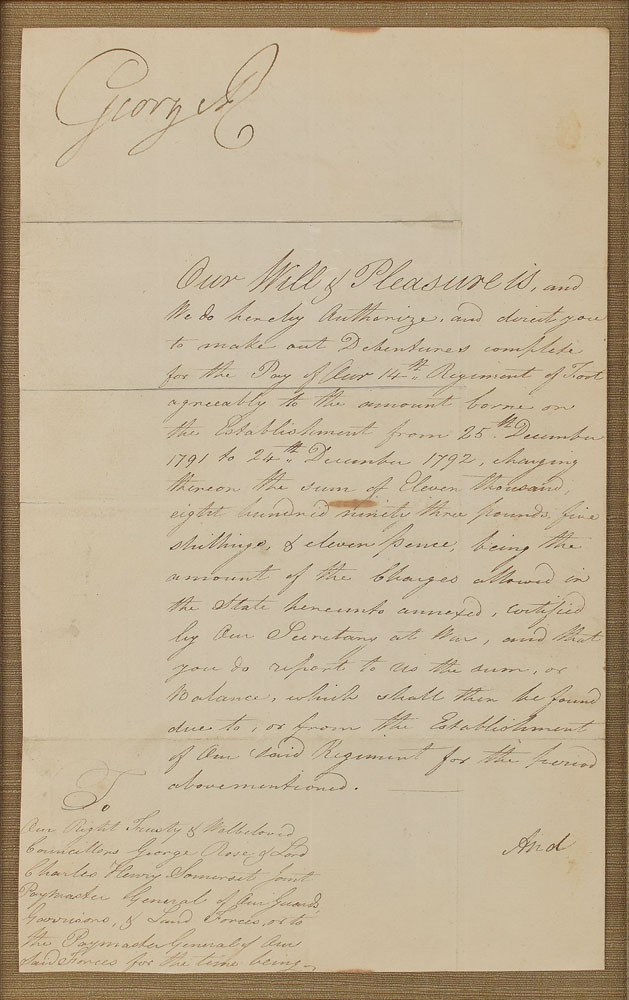 George R
Our Will & Pleasure is, and
We do hereby Authorize, and direct you
to make out Debentures complete
for the Pay of Our 14th Regiment of Foot
agreeably to the amount borne on
the Establishment from 25th December
1791 to 24th December 1792, charging
thereon the sum of Eleven thousand,
eight hundred ninety three pounds, five
shillings, & eleven pence, being the
amount of the Charges allowed in
the State hereunto annexed, certified
by Our Secretary at War, and that
you do report to Us the sum, or
Balance, which shall then be found
due to, or from the Establishment
of Our said Regiment for the period
abovementioned.
And
To
Our Right Trusty & Welbeloved
Councillors George Rose & Lord
Charles Henry Somerset Joint
Paymaster General of Our Guards,
Garrisons, & Land Forces, or to
the Paymaster General of Our
said Forces for the time being